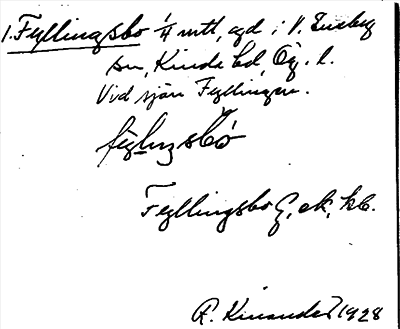 1. Fyllingsbo 1/4 mtl, egd i V. Eneby
sn, Kinda hd, Ög. l.
Vid sjön Fyllingen.
fy̱liŋsbo
Fyllingsbo G, ek, kb.
R. Kinander 1928